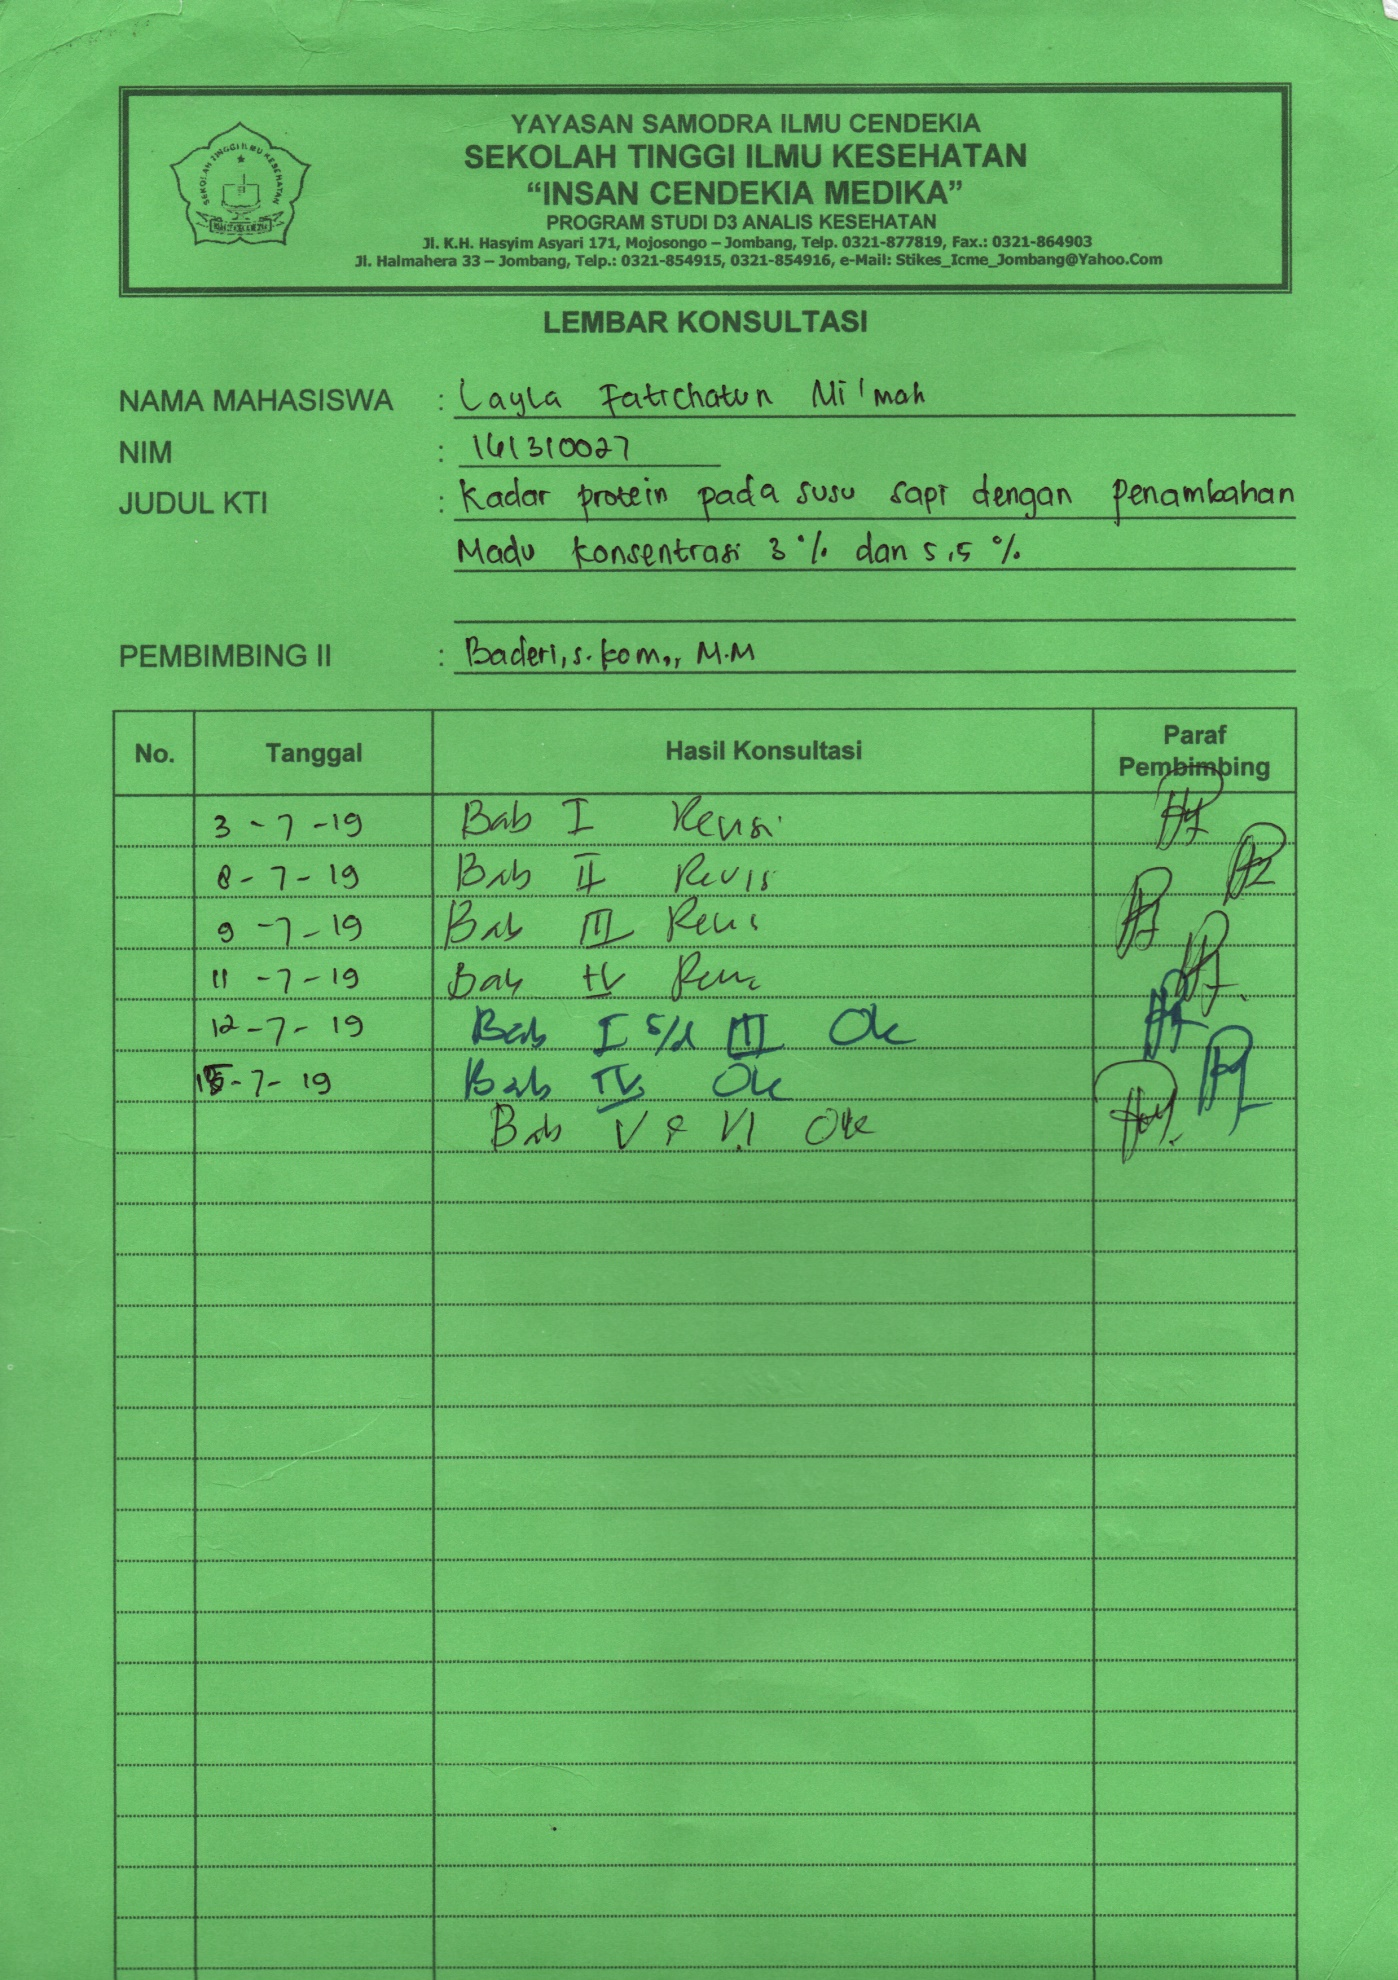 SEKOLAH TINGGI ILMU KESEHATAN
YAYASAN SAMODRA ILMU CENDEKIA
SEKOLAH TINGGI ILMU KESEHATAN
“INSAN CENDEKIA MEDIKA”
PROGRAM STUDI D3 ANALIS KESEHATAN
Jl. K.H. Hasyim Asyari 171, Mojosongo – Jombang, Telp. 0321-877819, Fax.: 0321-864903
Jl. Halmahera 33 – Jombang, Telp.: 0321-854915, 0321-854916, e-Mail: Stikes_Icme_Jombang@Yahoo.Com
LEMBAR KONSULTASI
NAMA MAHASISWA : Layla Fatichatun Ni'mah
NIM : 161310027
JUDUL KTI : Kadar protein pada susu sapi dengan Penambahan
Madu konsentrasi 3 % dan 5,5 %
PEMBIMBING II : Baderi, s.kom., M.M
No. Tanggal Hasil Konsultasi Paraf Pembimbing
3 - 7 - 19 Bab I Revisi
8 - 7 - 19 Bab II Revisi
9 - 7 - 19 Bab III Revisi
11 - 7 - 19 Bab IV Revisi
12 - 7 - 19 Bab I s/d III Ok
15 - 7 - 19 Bab IV Ok
Bab V & VI Ok